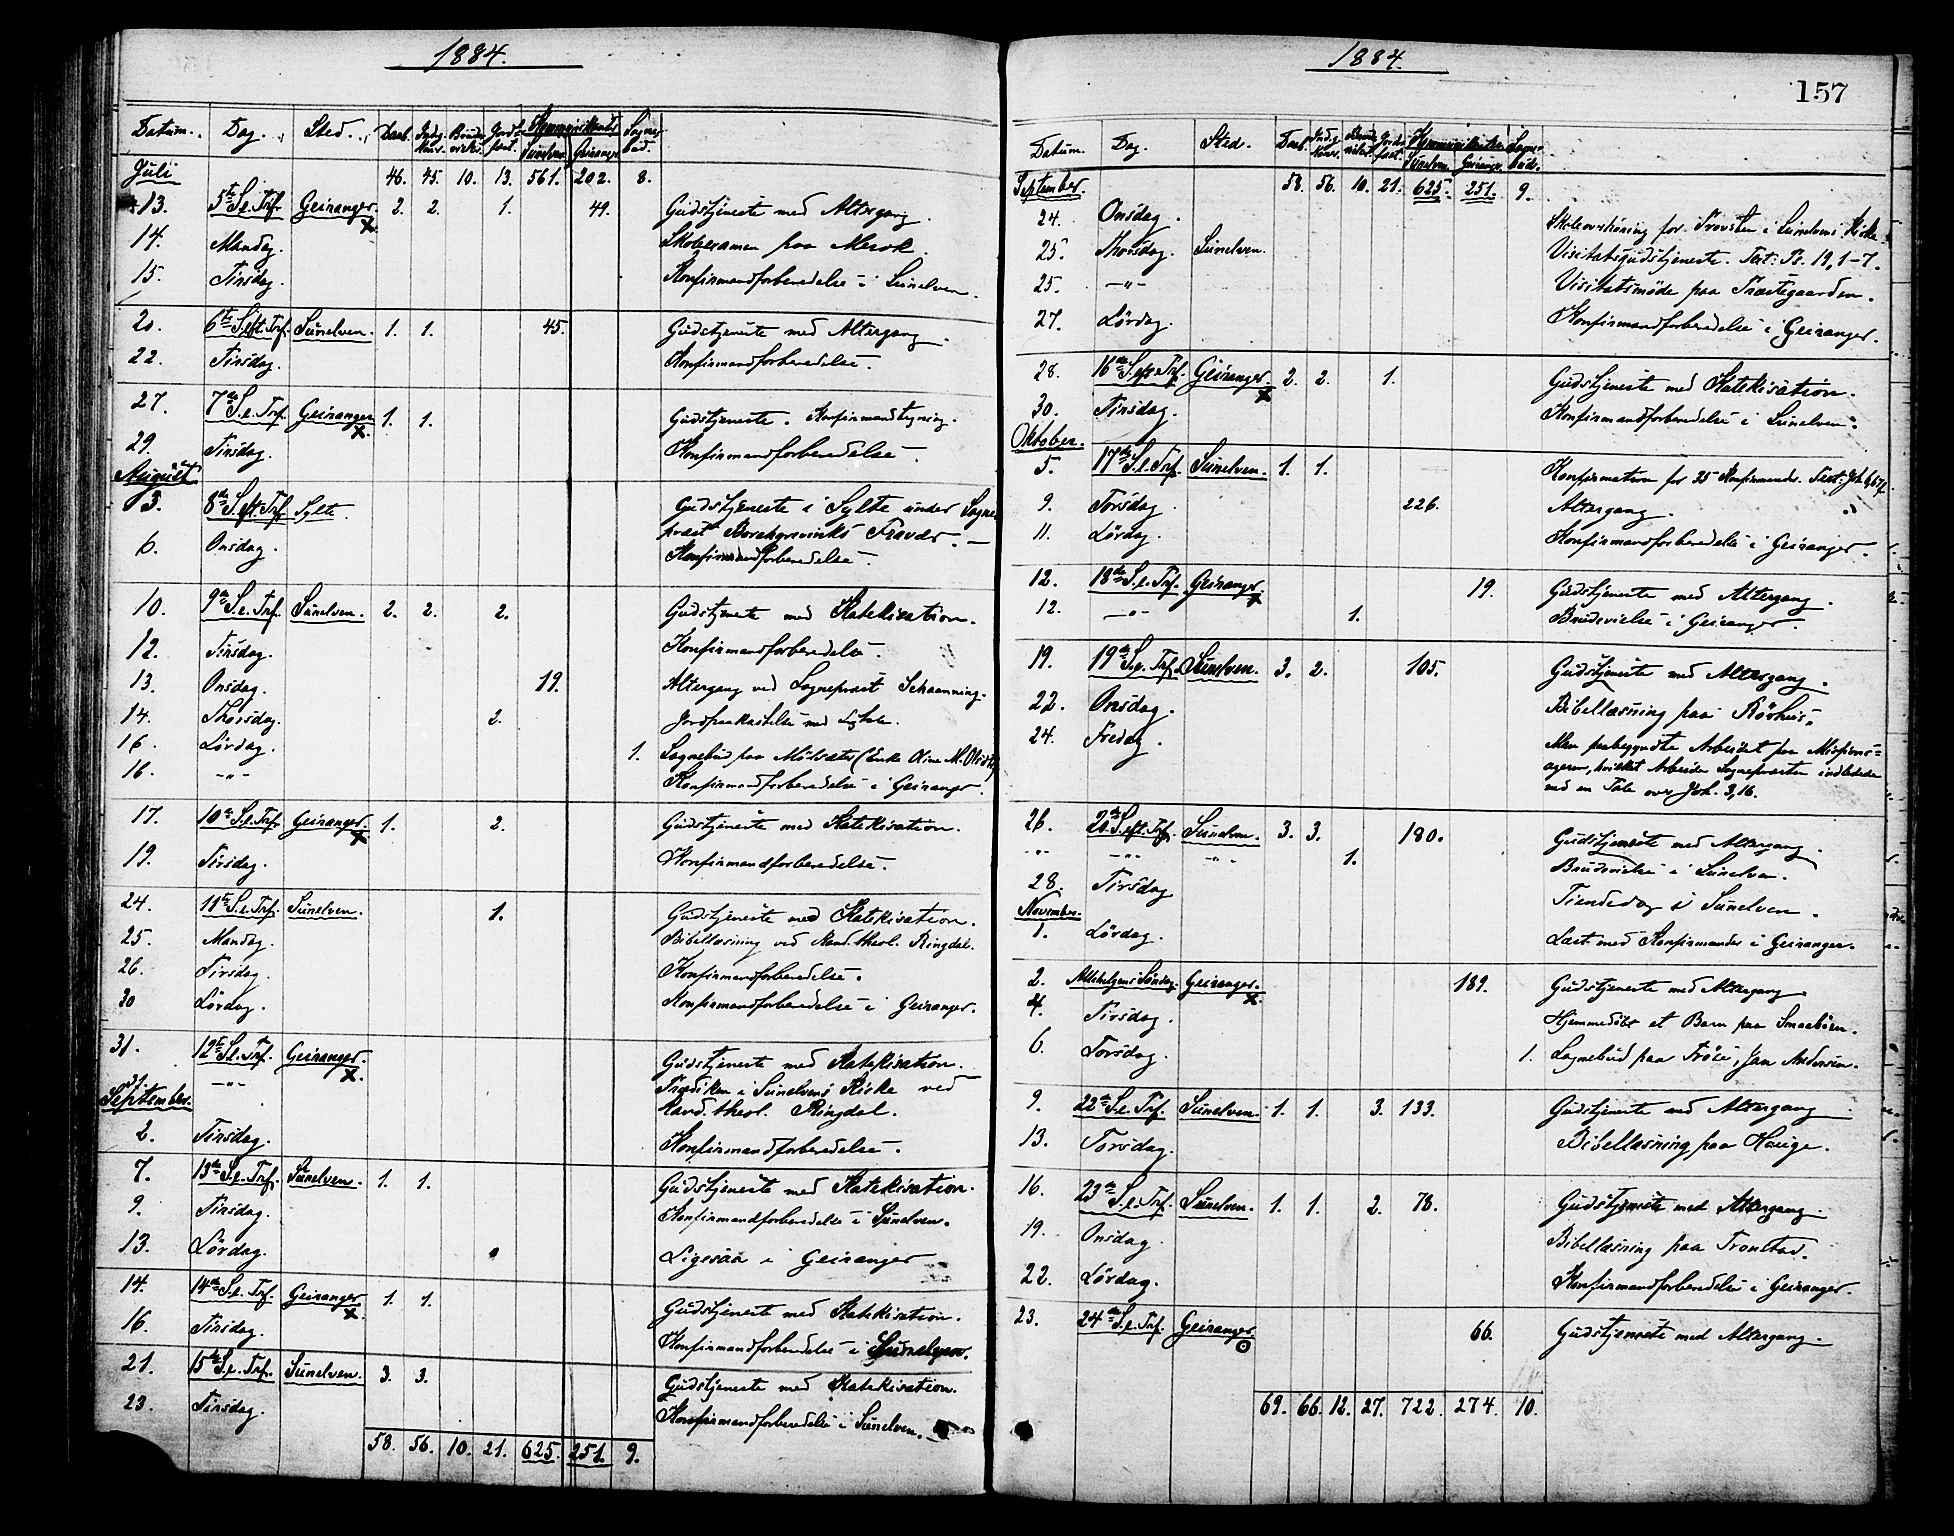 1884.
Datum. Dag. Sted. Daab. Indg. Konr. Brude vielse. Jordf. Kommunikanter Sunelven. Geiranger. Sognebud.
Juli 46. 45. 10. 13. 561. 202. 8.
13. 5te S. e. Trf. Geiranger. x 2. 2. 1. 49. Gudstjeneste med Altergang.
14. Mandag. Skoleexamen paa Merok.
15. Tirsdag. Konfirmandforberedelse i Sunelven.
20. 6te S. eft. Trf. Sunelven. 1. 1. 45. Gudstjeneste med Altergang.
22. Tirsdag. Konfirmandforberedelse.
27. 7de S. e. Trf. Geiranger x. 1. 1. Gudstjeneste.
29. Tirsdag. Konfirmandforberedelse.
August
3. 8de S. eft. Trf. Sylte. Gudstjeneste i Sylte under Sogne-
præst Borchgrevinks Fravær. —
6. Onsdag. Konfirmandforberedelse.
10. 9de S. e. Trf. Sunelven. 2. 2. 2. Gudstjeneste med Katekisation.
12. Tirsdag. Konfirmandforberedelse.
13. Onsdag. 19. Altergang ved Sognepræst Schaanning.
14. Thorsdag. 2. Jordpaakastelse med
16. Lördag. 1. Sognebud paa
16. -"- Konfirmandforberedelse i Geiranger.
17. 10de S. e. Trf. Geiranger. x 1. 2. Gudstjeneste med Katekisation.
19. Tirsdag. Konfirmandforberedelse.
24. 11te S. e. Trf. Sunelven. 1. Gudstjeneste med Katekisation.
25. Mandag. Bibellæsning ved Kand. theol. Ringdal.
26. Tirsdag. Konfirmandforberedelse.
30 Lördag. Konfirmandforberedelse i Geiranger.
31. 12te S. e. Trf. Geiranger. x. Gudstjeneste med Katekisation.
31. -"- Prædiken i Sunelvens Kirke ved
September. Kand. theol. Ringdal.
2. Tirsdag. Konfirmandforberedelse.
7. 13de S. e. Trf. Sunelven. 1. 1. Gudstjeneste med Katekisation.
9. Tirsdag. Konfirmandforberedelse i Sunelven.
13. Lördag. i Geiranger
14. 14de S. e. Trf. Geiranger x. 1. 1. Gudstjeneste med Katekisation.
16. Tirsdag. Konfirmandforberedelse i Sunelven.
21. 15de S. e. Trf. Sunelven. 3. 3. Gudstjeneste med Katekisation.
23. Tirsdag. Konfirmandforberedelse i Sunelven.
58. 56. 10. 21. 625. 251. 9.
1884.
157
Datum. Dag. Sted. Daab. Indg. Konr. Brude vielse. Jordf. Kommunikanter Sunelven. Geiranger. Sognebud.
September. 58. 56. 10. 21. 625. 251. 9.
24. Onsdag. for Provsten i Sunelvens Kirke.
25. Thorsdag. Sunelven. Visitatsgudstjeneste. Text: Ps. 19, 1-7.
25. -"- Visitatsmöde paa Præstegaarden.
27. Lördag. Konfirmandforberedelse i Geiranger.
28. 16de S. eft. Trf. Geiranger. x 2. 2. 1. Gudstjeneste med Katekisation.
30. Tirsdag. Konfirmandforberedelse i Sunelven.
Oktober.
5. 17de S. e. Trf. Sunelven. 1. 1. Konfirmation for 35 Konfirmander. Text: Joh.
9. Torsdag. 226. Altergang.
11. Lördag. Konfirmandforberedelse i Geiranger.
12. 18de S. e. Trf. Geiranger. x 19. Gudstjeneste med Altergang.
12. -"- 1. Brudevielse i Geiranger.
19. 19de S. e. Trf. Sunelven. 3. 2. 105. Gudstjeneste med Altergang.
22. Onsdag. Bibellæsning paa Rörhus.
24. Fredag. Man paabegyndte Arbeidet paa Missions-
ageren, hvilket Arbeide Sognepræsten indledede
med en Tale over Joh. 3,16.
26. 20de S. eft. Trf. Sunelven. 3. 3. 180. Gudstjeneste med Altergang.
-"- -"- -"- 1. Brudevielse i Sunelven.
28. Tirsdag. Tiendedag i Sunelven.
November.
1. Lördag. Læst med Konfirmander i Geiranger.
2. Allehelgens Söndag. Geiranger. x 189. Gudstjeneste med Altergang.
4. Tirsdag. Hjemmedöbt et Barn paa
6. Torsdag. 1. Sognebud paa
9. 22de S. e. Trf. Sunelven. 1. 1. 3. 133. Gudstjeneste med Altergang.
13. Torsdag. Bibellæsning paa Hauge.
16. 23de S. e. Trf. Sunelven. 1. 1. 2. 78. Gudstjeneste med Altergang.
19. Onsdag. Bibellæsning paa Tronstad.
22. Lördag. Konfirmandforberedelse i Geiranger.
23. 24de S. e. Trf. Geiranger. 66. Gudstjeneste med Altergang.
69. 66. 12. 27. 722. 274. 10.